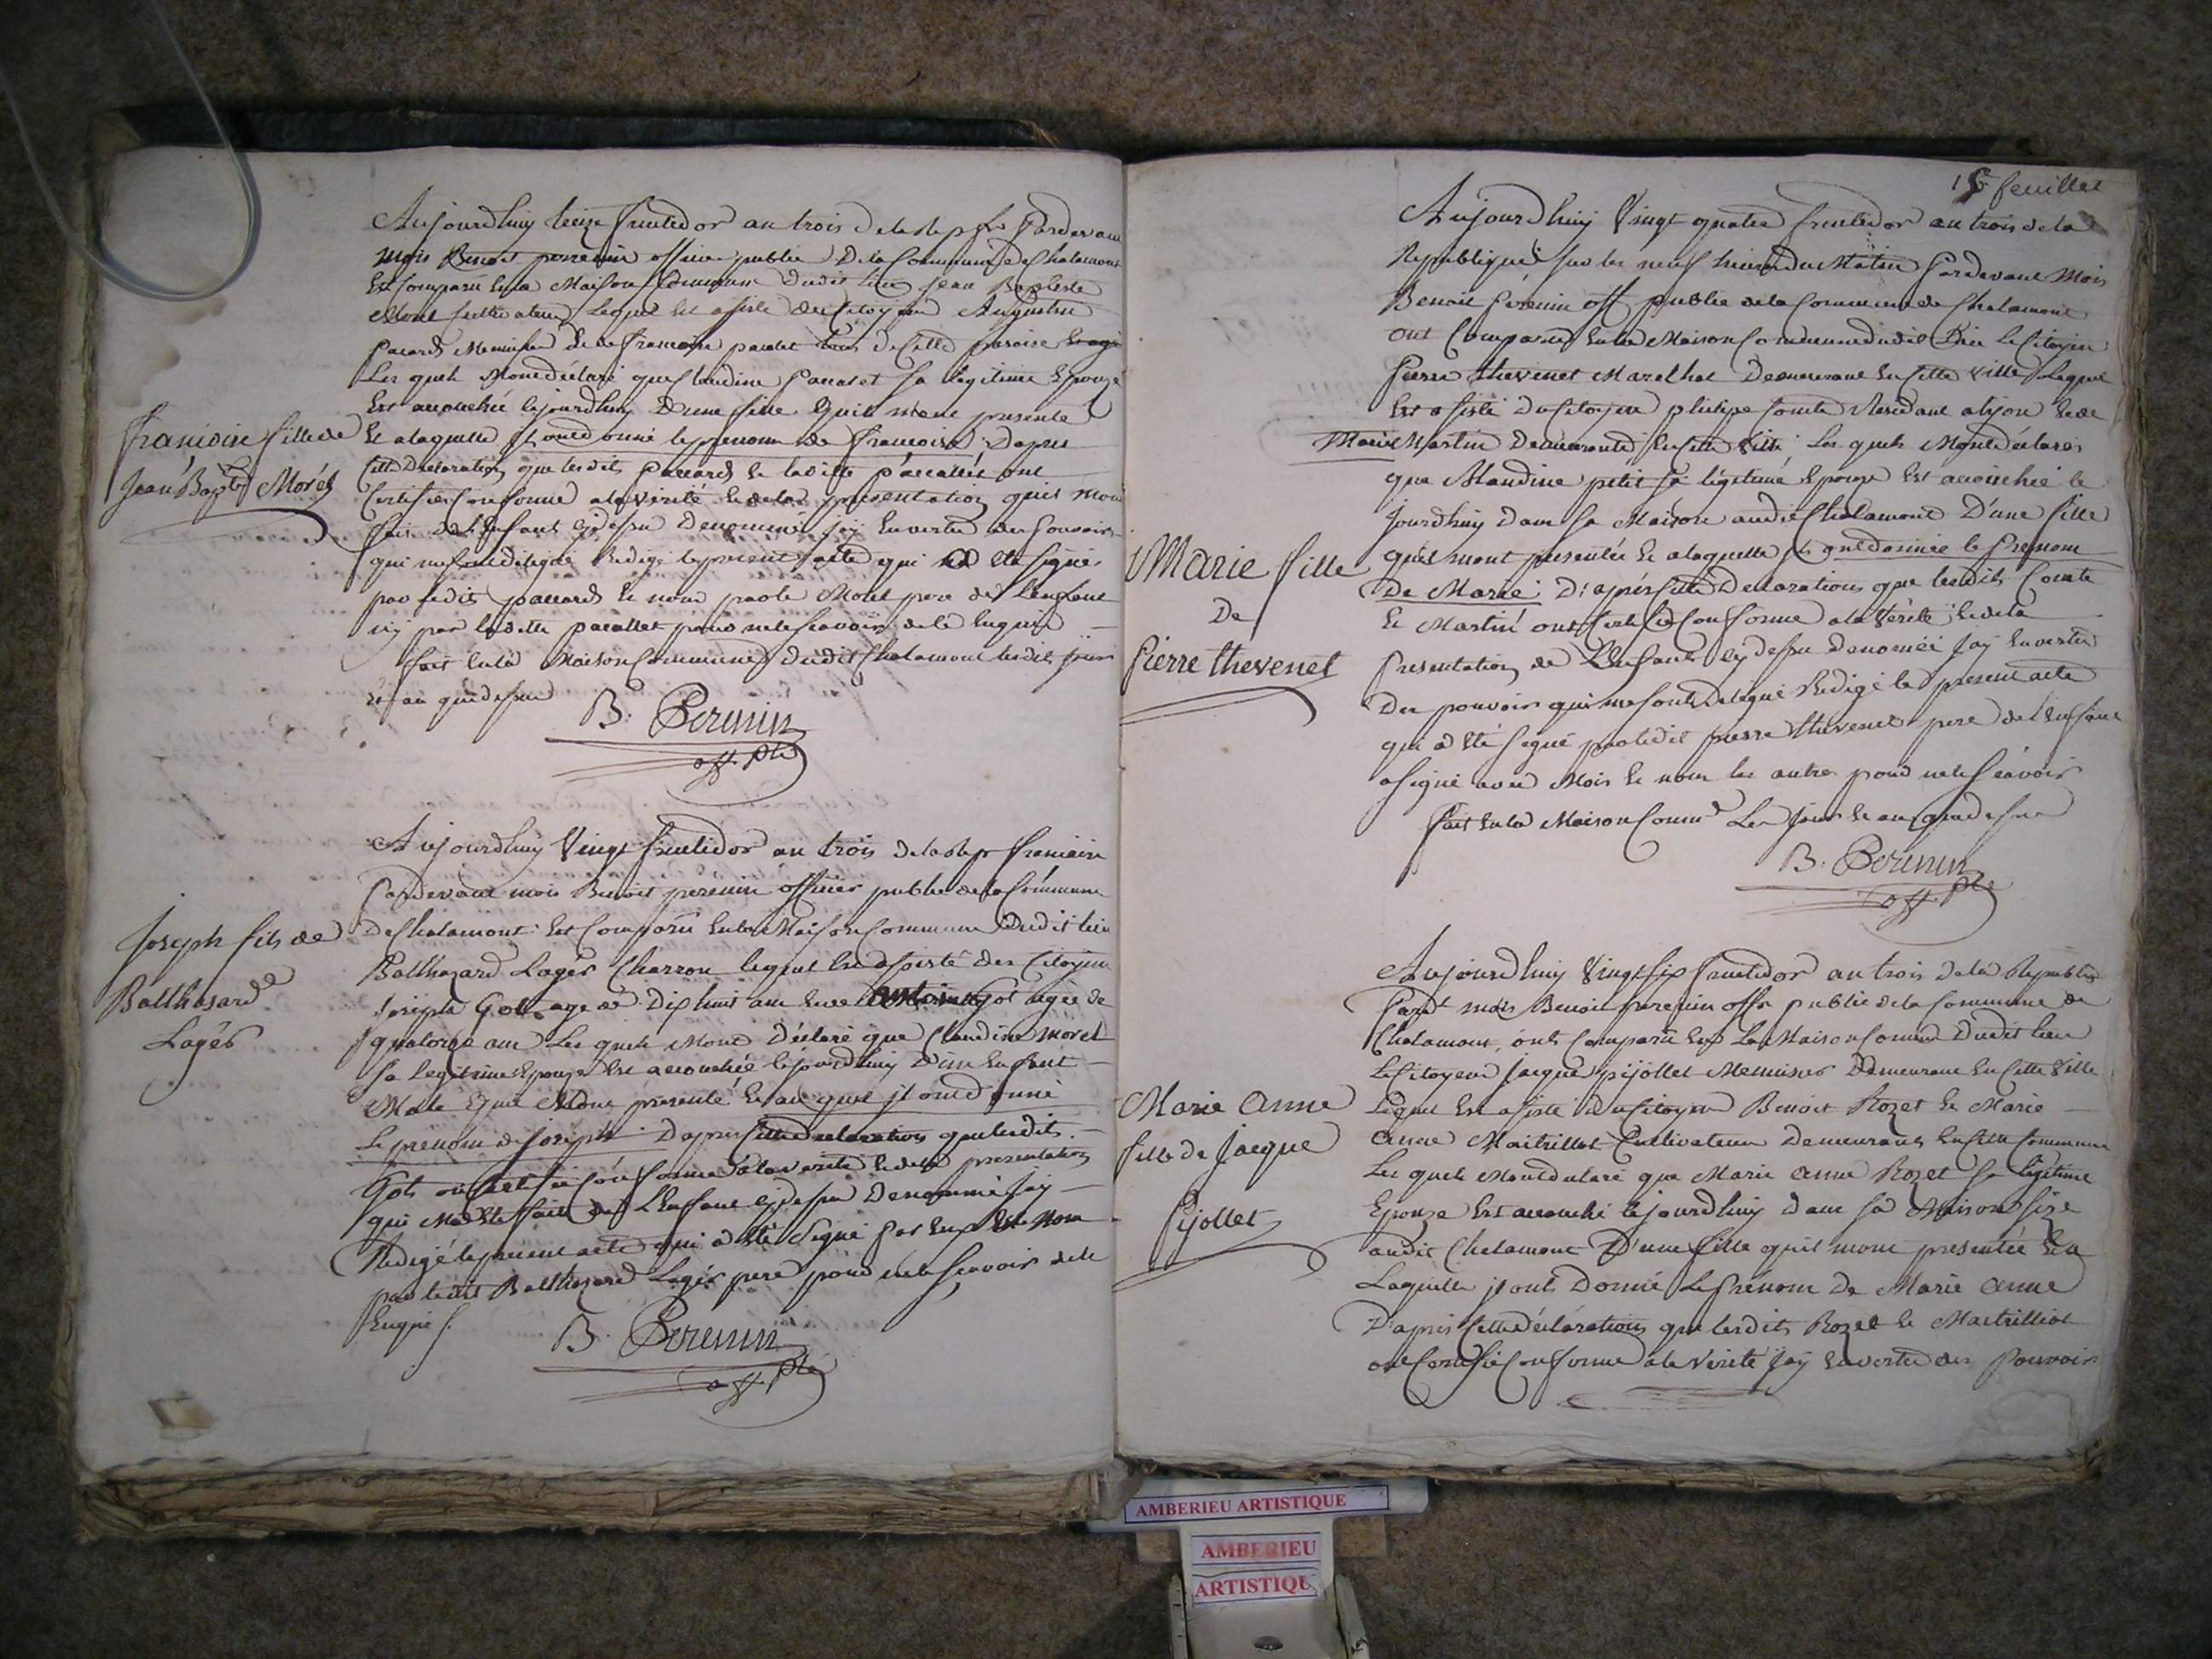 Aujourdhuy treize fructidor an trois de la Rep fr Pardevant
mois Benoit perenin officier public De la Commune de Chalamont
Est Comparu en la Maison Commune dudit lieu jean Baptiste
Morel Cultivateur lequel est asisté du Citoyen Augustin
pacard Menuisier et de francoise pacalet tous de cette paroise
Les quels Mont déclaré que Claudine Pacalet sa legitime Epouze
Est accouchée lejourdhuy D'une fille quils mont presenté
Et alaquelle ils ont donné le prenom de francoise, Dapres
Cette Declaration que lesdits paccard et laditte paccallet ont
Certifiée Conforme ala vérité et de la présentation quils mont
fait de l'Enfant cy desu Denommé jay En vertu des Pouvoirs
qui me sont délégué Redigé le present acte qui a été signé
par ledit paccard et nom par le Morel pere de L'enfant
ny par laditte pacallet pour ne le scavoir de ce enquis
fait en la Maison Commune dudit Chalamont lesdits jour
et an que desus
B. Perenin
off. plic
françoise fille de
Jean Bapte Morel
Aujourdhuy Vingt fructidor an trois de la Rep francaise
Pardevant mois Benoit perenin officier public de la Commune
De Chalamont Est Comparu en la Maison Commune Dudit lieu
Balthazard Lagér Charron lequel est asisté des Citoyens
Joseph Got age de Dixhuit ans et de antoine Got agée de
quatorze ans Les quels Mont Déclaré que Claudine Morel
sa legitime Epouze Est accouchée lejourdhuy D'un Enfant
Male quil Mont presenté et au quel jl ont donné
Le prénom de Joseph Dapres cette declaration que lesdits
Gots ont certifié conforme à la verité et de la presentation
qui Ma été faite de L'Enfant cy desu Denommé jay
Redigé le present acte qui a été Signé par Eux et Non
par ledit Balthazard Lagér pere pour ne le scavoir de ce
Enquis
B. Perenin
off. plic
Joseph fils de
Balthasard
Lagér
15e feuillet
Aujourdhuy Vingt quatre fructidor an trois de la
Republique sur les neuf heures du Matin Pardevant Mois
Benoit Perenin off public de la Commune de Chalamont
ont Comparu en la Maison Commune dudit Lieu le Citoyen
Pierre thevenet Marechal Demeurant en cette ville Lequel
Est asisté du Citoyen philipe Comte Residant a et de
Marie Martin Demeurante en cette ville, Les quels Mont déclarés
que Claudine petit sa légitime Epouze Est accouchée le
jourdhuy dans sa Maison audit Chalamont D'une fille
quils mont presentée et alaquelle ils ont donnée le Prenom
De Marie D'aprés cette Declaration que lesdits Comte
et Martin ont Certifié Conforme ala Vérité et de la
Presentation de L'Enfant cy desu denomée jay en vertu
Des pouvoirs qui me sont Delegué Redigé le present acte
qui a été signé par ledit pierre thevenet pere de l'enfant
a signé avec Mois et nom les autres pour ne le scavoir
fait en la Maison Commne Les jour et an que desus
B. Perenin
off. plic
Marie fille
De
Pierre thevenet
Aujourdhuy Vingt six fructidor an trois de la Republiq
Pardt mois Benoit perenin offr public de la Commune de
Chalamont, ont Comparu en La Maison Comune Dudit lieu
Le Citoyen jacque pijollet Menuisier Demeurant en cette ville
Lequel Est asisté du Citoyen Benoit Rozet et Marie
anne Maitrillot Cultivateur Demeurants en cette Commune
Les quels Mont declaré que Marie anne Rozet sa légitime
Epouze Est accouché lejourdhuy dans sa Maison size
audit Chalamont D'une fille quil mont presentée et a
Laquelle jl ont Donné Le Prénom De Marie anne
D'apres cette déclaration que lesdits Rozet et Maitrilliot
ont Certifié Conforme à la Verité jay en vertu des Pouvoirs
Marie Anne
fille de Jacque
Pijollet
AMBERIEU ARTISTIQUE
AMBERIEU
ARTISTIQU